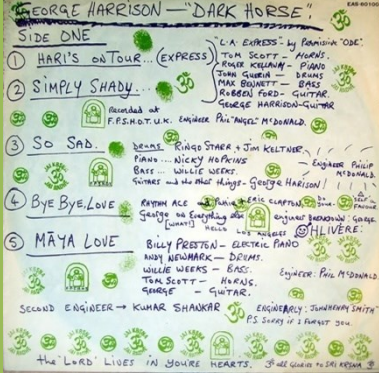 GEORGE HARRISON — "DARK HORSE".
EAS-80100
SIDE ONE
① HARI'S ON TOUR... (EXPRESS)
② SIMPLY SHADY...
"L.A. EXPRESS" - by Permission "ODE".
TOM SCOTT — HORNS.
ROGER KELLAWAY — PIANO
JOHN GUERIN — DRUMS
MAX BENNETT — BASS
ROBBEN FORD — GUITAR.
GEORGE HARRISON - GUITAR
Recorded at
F.P.S.H.O.T. U.K. Engineer Phil "ANGEL" McDONALD.
③ SO SAD.
DRUMS RINGO STARR + JIM KELTNER.
PIANO... NICKY HOPKINS
BASS... WILLIE WEEKS.
GUITARS and the other things - GEORGE HARISON!
Engineer PHILIP
McDONALD.
④ BYE BYE, LOVE
RHYTHM ACE and Pattie + ERIC CLAPTON.
George on Everything else
[WHAT] HELLO LOS ANGELES
OHLIVERE:
⑤ MĀYA LOVE
BILLY PRESTON — ELECTRIC PIANO
ANDY NEWMARK — DRUMS.
WILLIE WEEKS — BASS.
TOM SCOTT — HORNS.
GEORGE — GUITAR.
Engineer: PHIL McDONALD.
SECOND ENGINEER → KUMAR SHANKAR
ENGINEARLY: JOHN HENRY SMITH
P.S. SORRY IF I FORGOT YOU.
the 'LORD' LIVES IN YOU'RE HEARTS.
ॐ all GLORIES TO SRI KRSNA ॐ